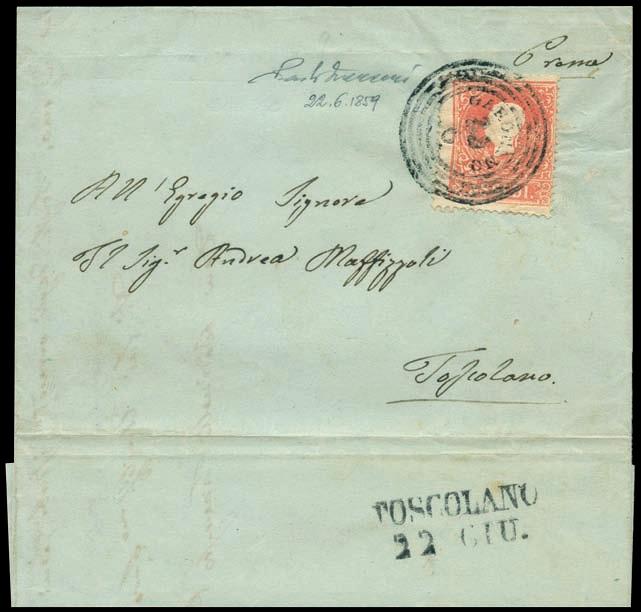 Preme
22.6.1859
All' Egregio Signore
Il Sigr Andrea Maffizzoli
Toscolano.
TOSCOLANO
22 GIU.